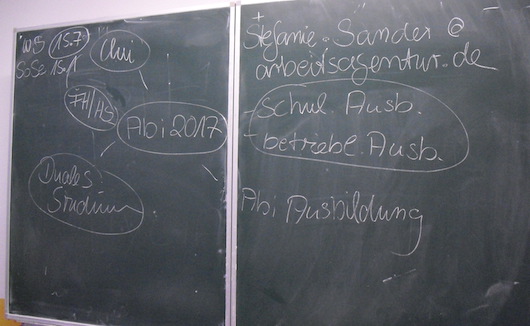 WS 15.7
SoSe 15.1
Uni
FH/HS
Abi 2017
Duales
Studium
Stefanie.Sander@
arbeitsagentur.de
- schul. Ausb.
- betriebl. Ausb.
Abi Ausbildung